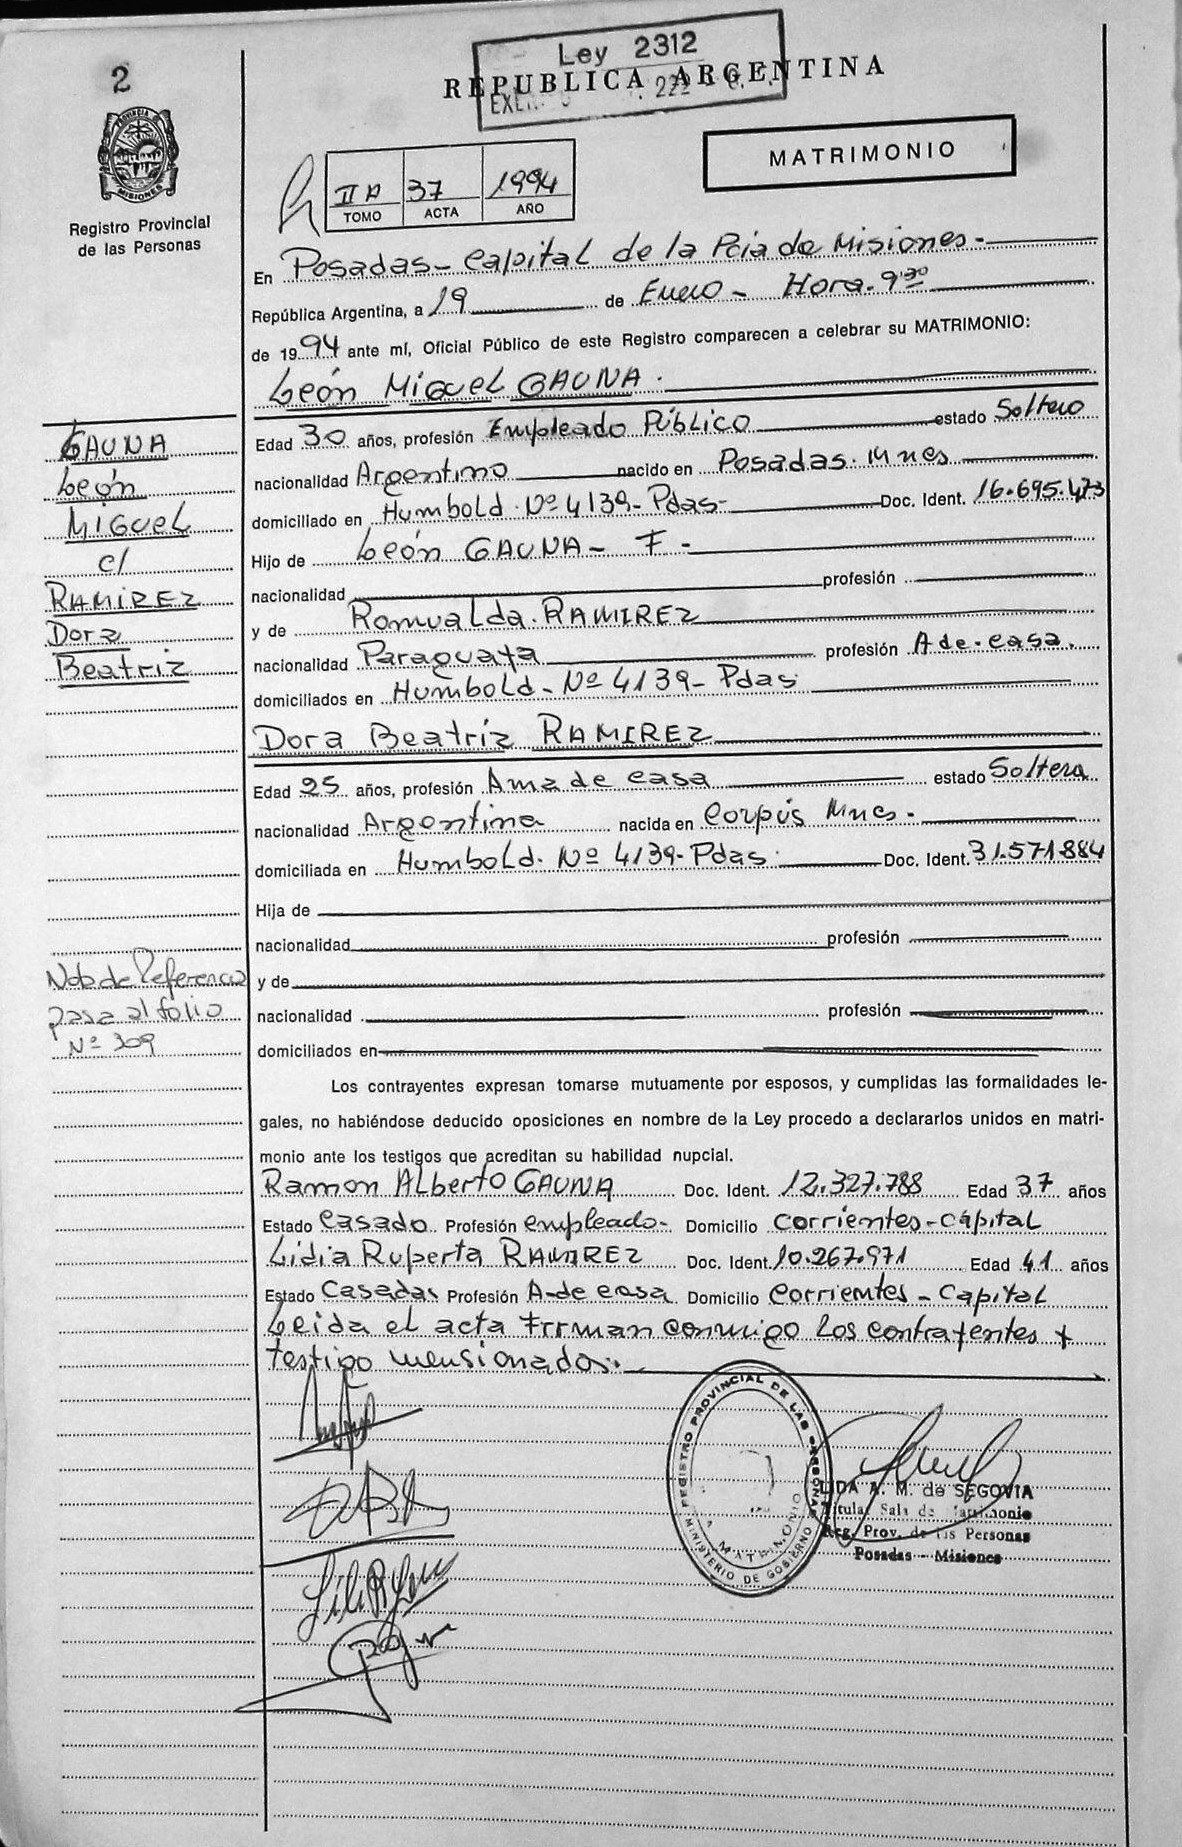 2
Ley 2312
REPUBLICA ARGENTINA
MATRIMONIO
PROVINCIA
MISIONES
Registro Provincial
de las Personas
II A 37 1994
TOMO ACTA AÑO
En Posadas - Capital de la Pcia de Misiones -
República Argentina, a 19 de Enero - Hora. 9 30
de 1994 ante mí, Oficial Público de este Registro comparecen a celebrar su MATRIMONIO:
León Miguel GAUNA.
Edad 30 años, profesión Empleado Público estado Soltero
nacionalidad Argentino nacido en Posadas. Mnes
domiciliado en Humbold. Nº 4139 - Pdas - Doc. Ident. 16.695.473
Hijo de León GAUNA - F -
nacionalidad profesión
y de Romualda. RAMIREZ
nacionalidad Paraguaya profesión A de. casa.
domiciliados en Humbold - Nº 4139 - Pdas
Dora Beatriz RAMIREZ
Edad 25 años, profesión Ama de casa estado Soltera
nacionalidad Argentina nacida en Corpus Mnes.
domiciliada en Humbold. Nº 4139 - Pdas. Doc. Ident. 31.571.884
Hija de
nacionalidad profesión
y de
nacionalidad profesión
domiciliados en
Los contrayentes expresan tomarse mutuamente por esposos, y cumplidas las formalidades le-
gales, no habiéndose deducido oposiciones en nombre de la Ley procedo a declararlos unidos en matri-
monio ante los testigos que acreditan su habilidad nupcial.
Ramon Alberto GAUNA Doc. Ident. 12.327.788 Edad 37 años
Estado Casado Profesión empleado - Domicilio Corrientes - Capital
Lidia Ruperta RAMIREZ Doc. Ident. 10.267.971 Edad 41 años
Estado Casada Profesión A - de casa Domicilio Corrientes - Capital
Leida el acta firman conmigo los contrayentes y
testigo mensionados.
GAUNA
León
Miguel
c/
RAMIREZ
Dora
Beatriz
Nota de Referencia
pasa al folio
Nº 309
REGISTRO PROVINCIAL DE LAS PERSONAS
MATRIMONIO
MINISTERIO DE GOBIERNO
LIDA A. M. de SEGOVIA
Titular Sala de Matrimonio
Reg. Prov. de las Personas
Posadas - Misiones